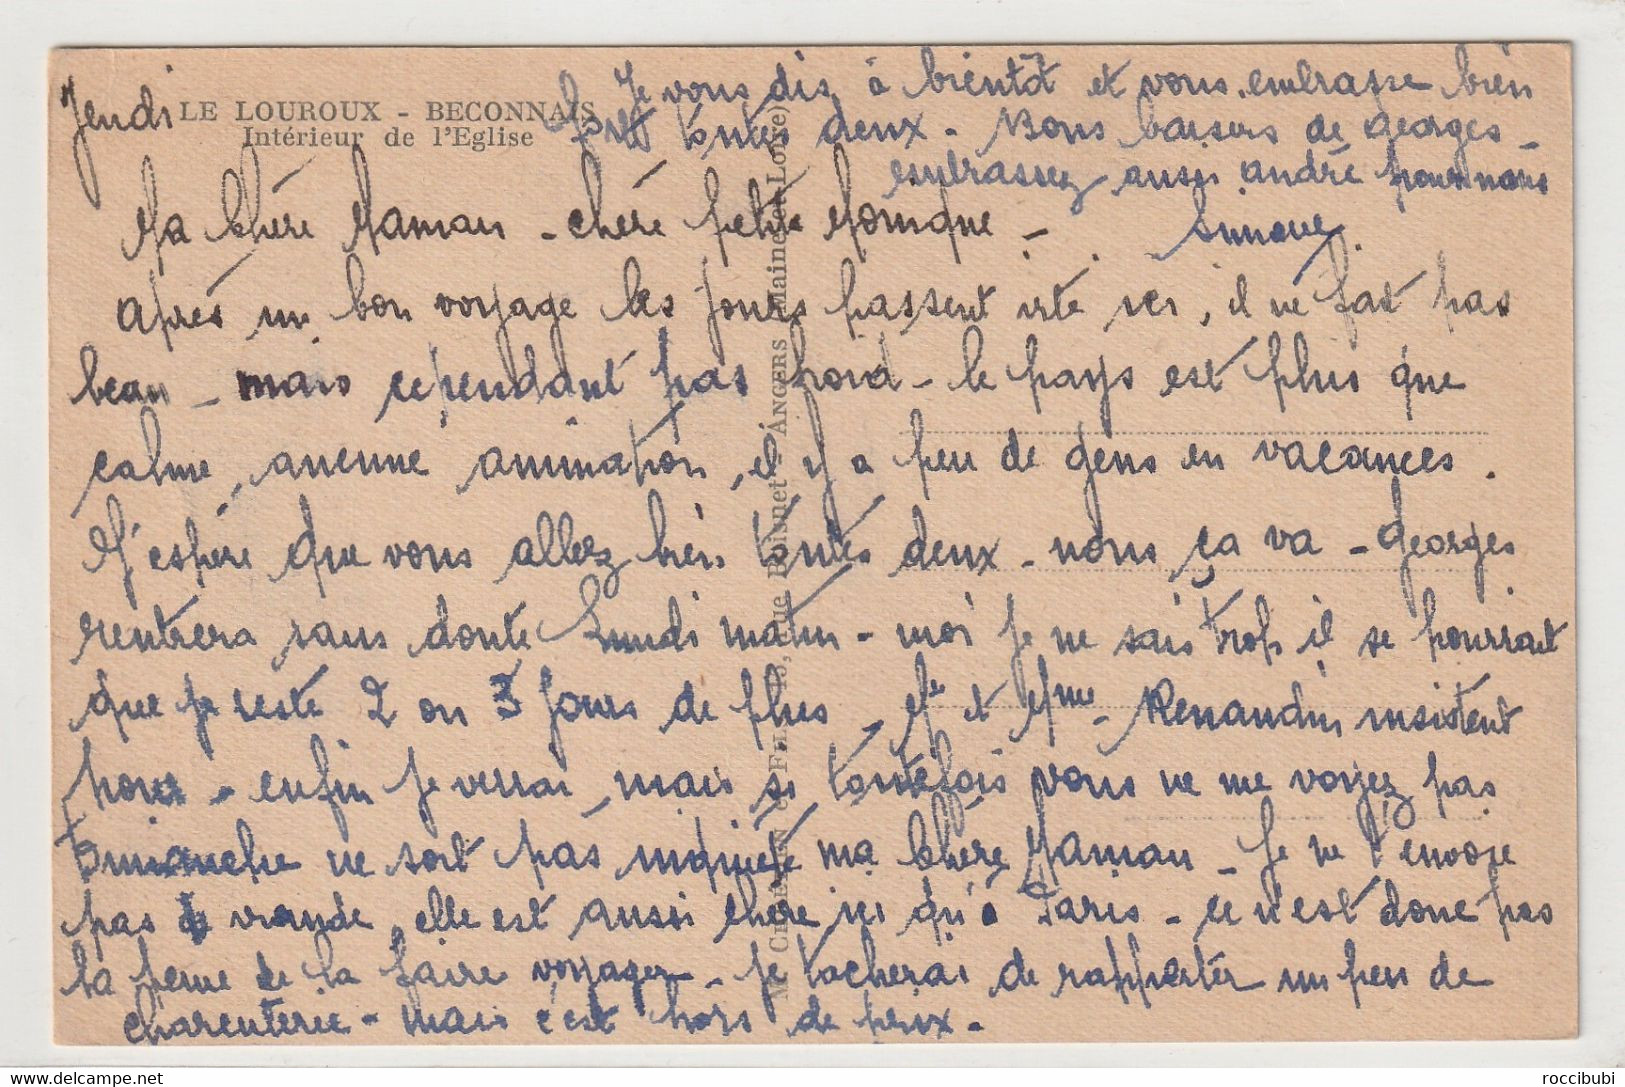 Jeudi
LE LOUROUX - BECONNAIS
Intérieur de l'Eglise
Ma chère Maman - chère petite Monique -
après un bon voyage les jours passent vite ici, il ne fait pas
beau - mais cependant pas froid - le pays est plus que
calme, aucune animation, il y a peu de gens en vacances.
J'espère que vous allez bien toutes deux - nous ça va - Georges
rentrera sans doute Lundi matin - moi je ne sais trop il se pourrait
que je reste 2 ou 3 jours de plus, Mr et Mme Renaudin insistent
pour - enfin je verrai, mais si toutefois vous ne me voyez pas
Dimanche ne soit pas inquiète ma chère Maman - Je ne t'envoie
pas de viande, elle est aussi chère ici qu'à Paris - ce n'est donc pas
la peine de la faire voyager - je tacherai de rapporter un peu de
charcuterie - mais c'est hors de prix -
Je vous dis à bientôt et vous embrasse bien
fort toutes deux - Bons baisers de Georges -
embrassez aussi andré pour nous
Simone
Boisnet - ANGERS (Maine-et-Loire)
roccibubi